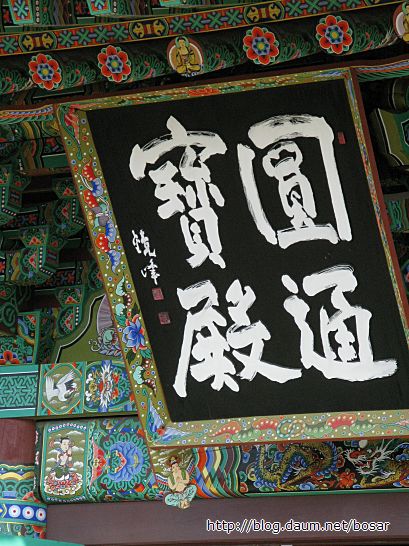 圓通
寶殿
http://blog.daum.net/bosar